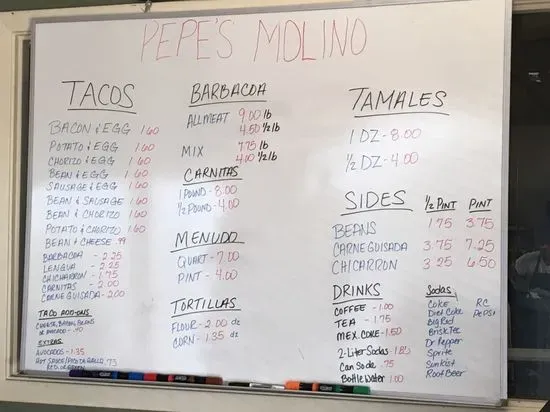 PEPE'S MOLINO
TACOS
BACON & EGG 1.60
POTATO & EGG 1.60
CHORIZO & EGG 1.60
BEAN & EGG 1.60
SAUSAGE & EGG 1.60
BEAN & SAUSAGE 1.60
BEAN & CHORIZO 1.60
POTATO & CHORIZO 1.60
BEAN & CHEESE .99
BARBACOA - 2.25
LENGUA - 2.25
CHICHARRON - 1.75
CARNITAS - 2.00
CARNE GUISADA - 2.00
TACO ADD-ONS
CHEESE, BACON, BEANS
OR AVOCADO - .40
EXTRAS
AVOCADOS - 1.35
HOT SAUCE / PICO DE GALLO .75
RED OR GREEN
BARBACOA
ALL MEAT 9.00 lb
4.50 1/2 lb
MIX 7.75 lb
4.00 1/2 lb
CARNITAS
1 POUND - 8.00
1/2 POUND - 4.00
MENUDO
QUART - 7.00
PINT - 4.00
TORTILLAS
FLOUR - 2.00 dz
CORN - 1.35 dz
TAMALES
1 DZ - 8.00
1/2 DZ - 4.00
SIDES 1/2 PINT PINT
BEANS 1.75 3.75
CARNE GUISADA 3.75 7.25
CHICARRON 3.25 6.50
DRINKS
COFFEE - 1.00
TEA - 1.75
MEX. COKE - 1.50
2-Liter Sodas
Can Soda .75
Bottle Water 1.00
Sodas
Coke R.C.
Diet Coke PEPSI
Big Red
Brisk Tea
Dr Pepper
Sprite
Sunkist
Root Beer